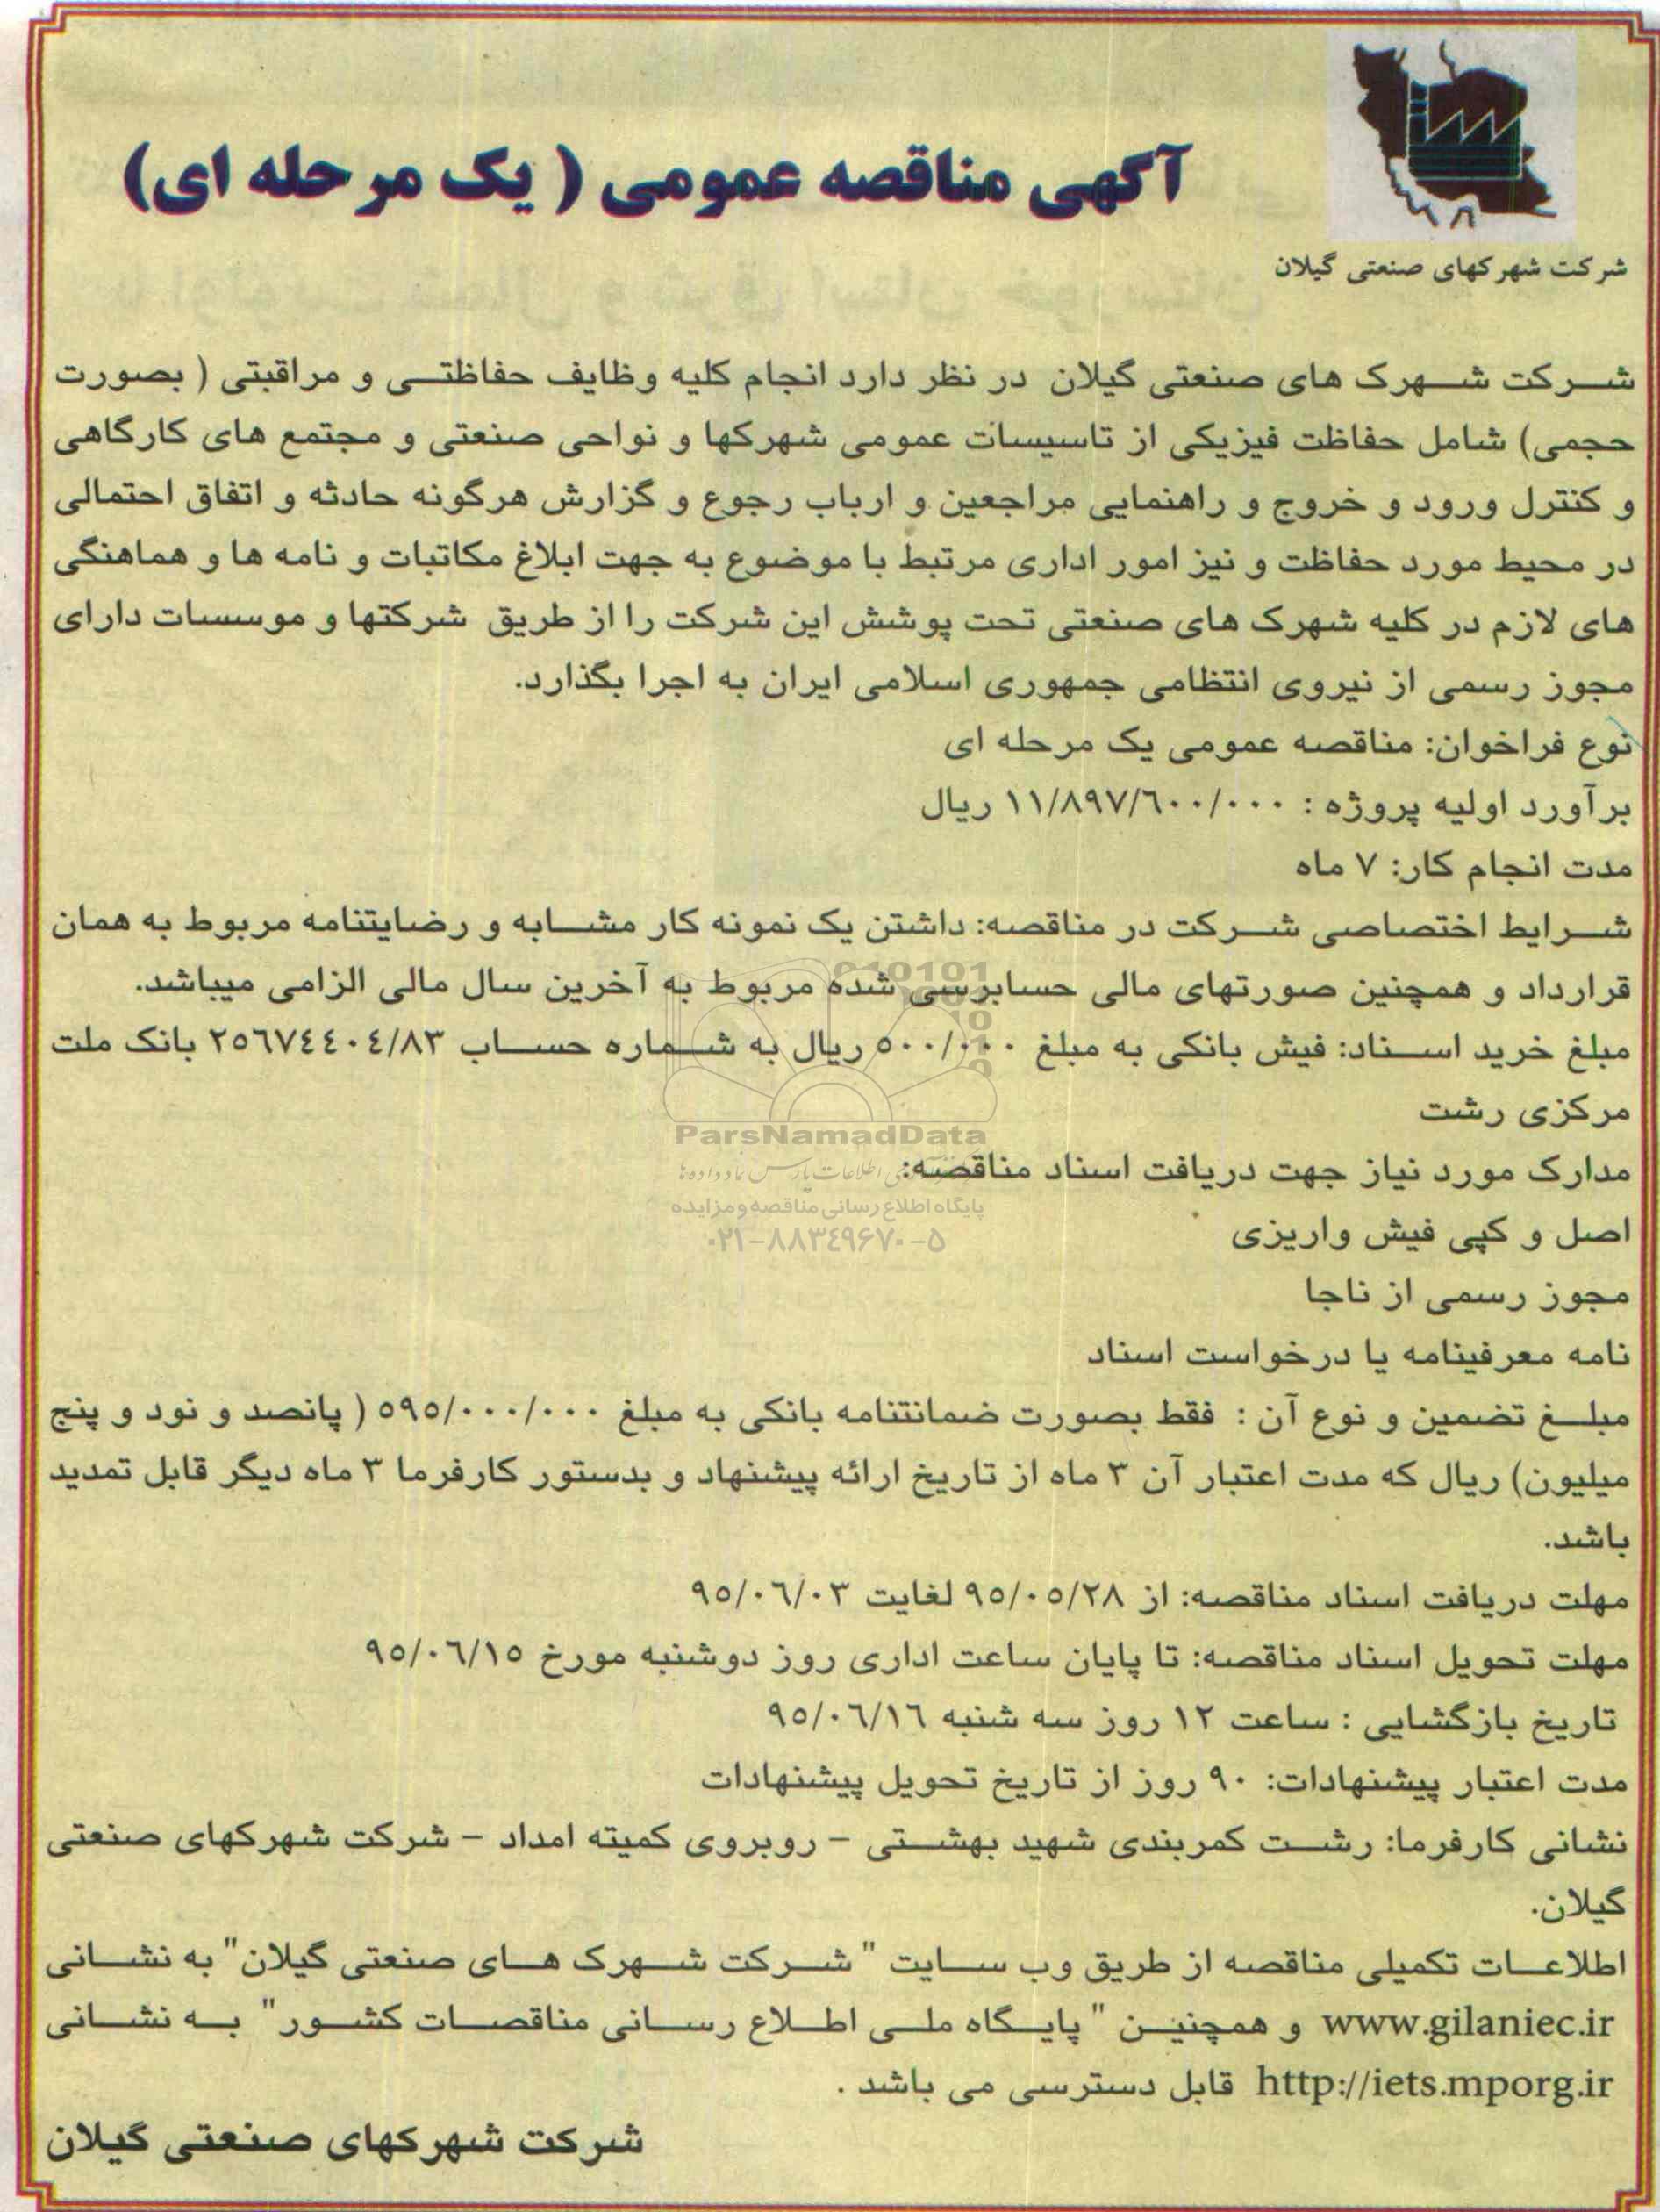 آگهی مناقصه عمومی ( یک مرحله ای)
شرکت شهرکهای صنعتی گیلان
شرکت شهرک های صنعتی گیلان در نظر دارد انجام کلیه وظایف حفاظتی و مراقبتی ( بصورت
حجمی) شامل حفاظت فیزیکی از تاسیسات عمومی شهرکها و نواحی صنعتی و مجتمع های کارگاهی
و کنترل ورود و خروج و راهنمایی مراجعین و ارباب رجوع و گزارش هرگونه حادثه و اتفاق احتمالی
در محیط مورد حفاظت و نیز امور اداری مرتبط با موضوع به جهت ابلاغ مکاتبات و نامه ها و هماهنگی
های لازم در کلیه شهرک های صنعتی تحت پوشش این شرکت را از طریق شرکتها و موسسات دارای
مجوز رسمی از نیروی انتظامی جمهوری اسلامی ایران به اجرا بگذارد.
نوع فراخوان: مناقصه عمومی یک مرحله ای
برآورد اولیه پروژه : ۱۱/۸۹۷/۶۰۰/۰۰۰ ریال
مدت انجام کار: ۷ ماه
شرایط اختصاصی شرکت در مناقصه: داشتن یک نمونه کار مشابه و رضایتنامه مربوط به همان
قرارداد و همچنین صورتهای مالی حسابرسی شده مربوط به آخرین سال مالی الزامی میباشد.
مبلغ خرید اسناد: فیش بانکی به مبلغ ۵۰۰/۰۰۰ ریال به شماره حساب ۲۵۶۷۴۴۰۴/۸۳ بانک ملت
مرکزی رشت
مدارک مورد نیاز جهت دریافت اسناد مناقصه:
اصل و کپی فیش واریزی
مجوز رسمی از ناجا
نامه معرفینامه یا درخواست اسناد
مبلغ تضمین و نوع آن : فقط بصورت ضمانتنامه بانکی به مبلغ ۵۹۵/۰۰۰/۰۰۰ ( پانصد و نود و پنج
میلیون) ریال که مدت اعتبار آن ۳ ماه از تاریخ ارائه پیشنهاد و بدستور کارفرما ۳ ماه دیگر قابل تمدید
باشد.
مهلت دریافت اسناد مناقصه: از ۹۵/۰۵/۲۸ لغایت ۹۵/۰۶/۰۳
مهلت تحویل اسناد مناقصه: تا پایان ساعت اداری روز دوشنبه مورخ ۹۵/۰۶/۱۵
تاریخ بازگشایی : ساعت ۱۲ روز سه شنبه ۹۵/۰۶/۱۶
مدت اعتبار پیشنهادات: ۹۰ روز از تاریخ تحویل پیشنهادات
نشانی کارفرما: رشت کمربندی شهید بهشتی – روبروی کمیته امداد – شرکت شهرکهای صنعتی
گیلان.
اطلاعات تکمیلی مناقصه از طریق وب سایت " شرکت شهرک های صنعتی گیلان" به نشانی
www.gilaniec.ir و همچنین " پایگاه ملی اطلاع رسانی مناقصات کشور" به نشانی
http://iets.mporg.ir قابل دسترسی می باشد .
شرکت شهرکهای صنعتی گیلان
ParsNamadData
پایگاه اطلاع رسانی مناقصه و مزایده
۰۲۱-۸۸۳۴۹۶۷۰-۵